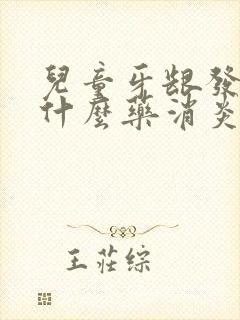 兒童牙齦發
什麼藥消炎
王莊綜